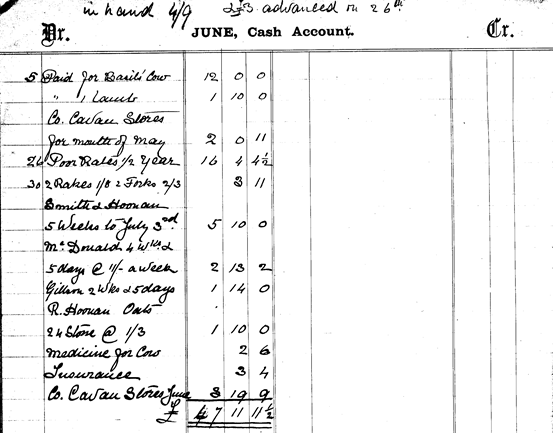 in hand 4/9 £3 advanced on 26th
Dr. JUNE, Cash Account. Cr.
5 Paid for Basils' Cow 12 0 0
" 1 Lamb 1 10 0
Co. Cavan Stores
for month of May 2 0 11
26 Poor Rates 1/2 Year 16 4 4½
30 2 Rakes 1/8 2 Forks 2/3 3 11
Smith & Hoonan
5 Weeks to July 3rd 5 10 0
Mc Donald 4 Wks &
5 days @ 11/- a week 2 13 2
2 Wks & 5 days 1 14 0
R. Hoonan Oats
24 Stone @ 1/3 1 10 0
Medicine for Cow 2 6
Insurance 3 4
Co. Cavan Stores June 3 19 9
£ 47 11 11½